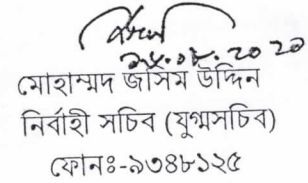 ২৫.০৮.২০২০
মোহাম্মদ জসিম উদ্দিন
নির্বাহী সচিব (যুগ্মসচিব)
ফোনঃ-৯৩৪৮১২৫